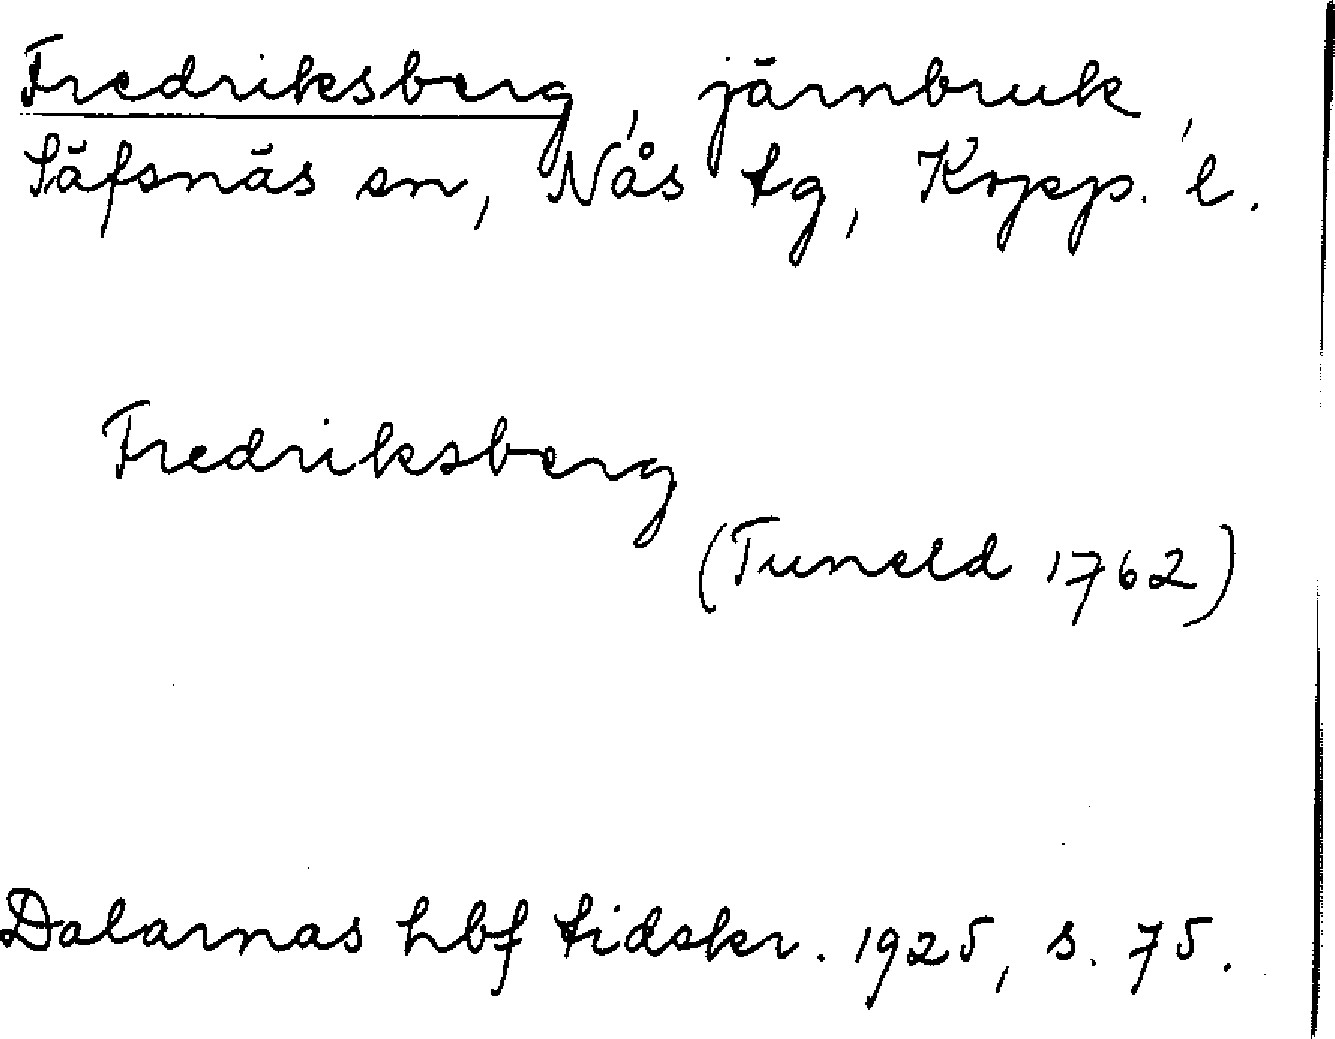 Fredriksberg, järnbruk,
Säfsnäs sn, Nås tg, Kopp. l.
Fredriksberg
(Tuneld 1762)
Dalarnas hbf tidskr. 1925, s. 75.